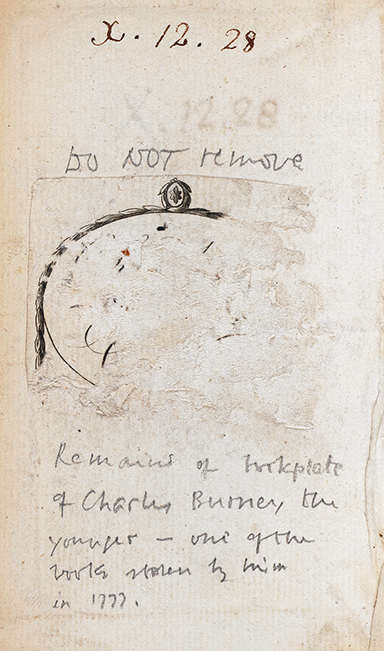 X. 12. 28
X. 12. 28
Do NOT remove
Remains of bookplate
of Charles Burney the
younger – one of the
books stolen by him
in 1777.